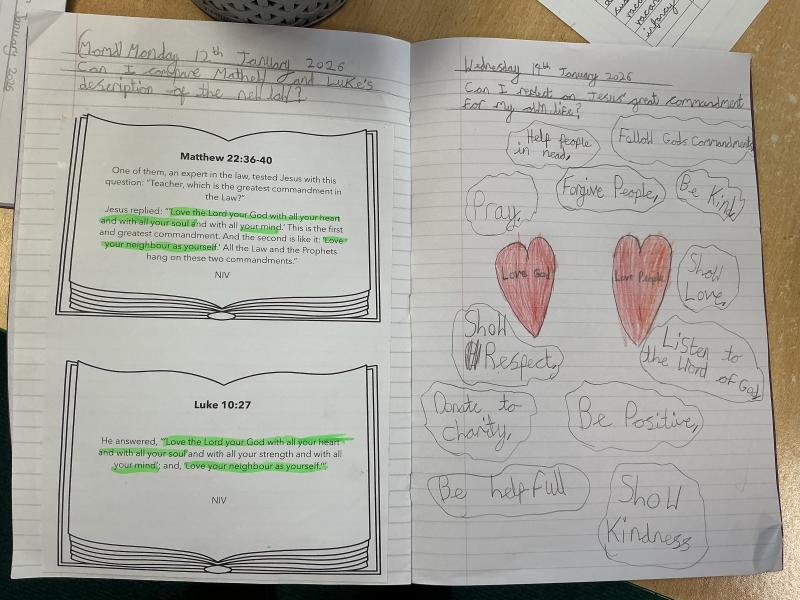 Monday 12th January 2026
Can I compare Mathew and Luke's
description of the new law?
Matthew 22:36-40
One of them, an expert in the law, tested Jesus with this
question: "Teacher, which is the greatest commandment in
the Law?"
Jesus replied: "'Love the Lord your God with all your heart
and with all your soul and with all your mind.' This is the first
and greatest commandment. And the second is like it: 'Love
your neighbour as yourself.' All the Law and the Prophets
hang on these two commandments."
NIV
Luke 10:27
He answered, "'Love the Lord your God with all your heart
and with all your soul and with all your strength and with all
your mind'; and, 'Love your neighbour as yourself.'"
NIV
Wednesday 14th January 2026
Can I reflect on Jesus' great commandment
for my own life?
Help people
in need,
Follow Gods Commandments
Forgive People,
Be Kind,
Pray,
Love God
Love People
Show
Love,
Show
Respect,
Listen to
the Word of God
Donate to
charity,
Be Positive,
Be helpfull
Show
Kindness
January 2026